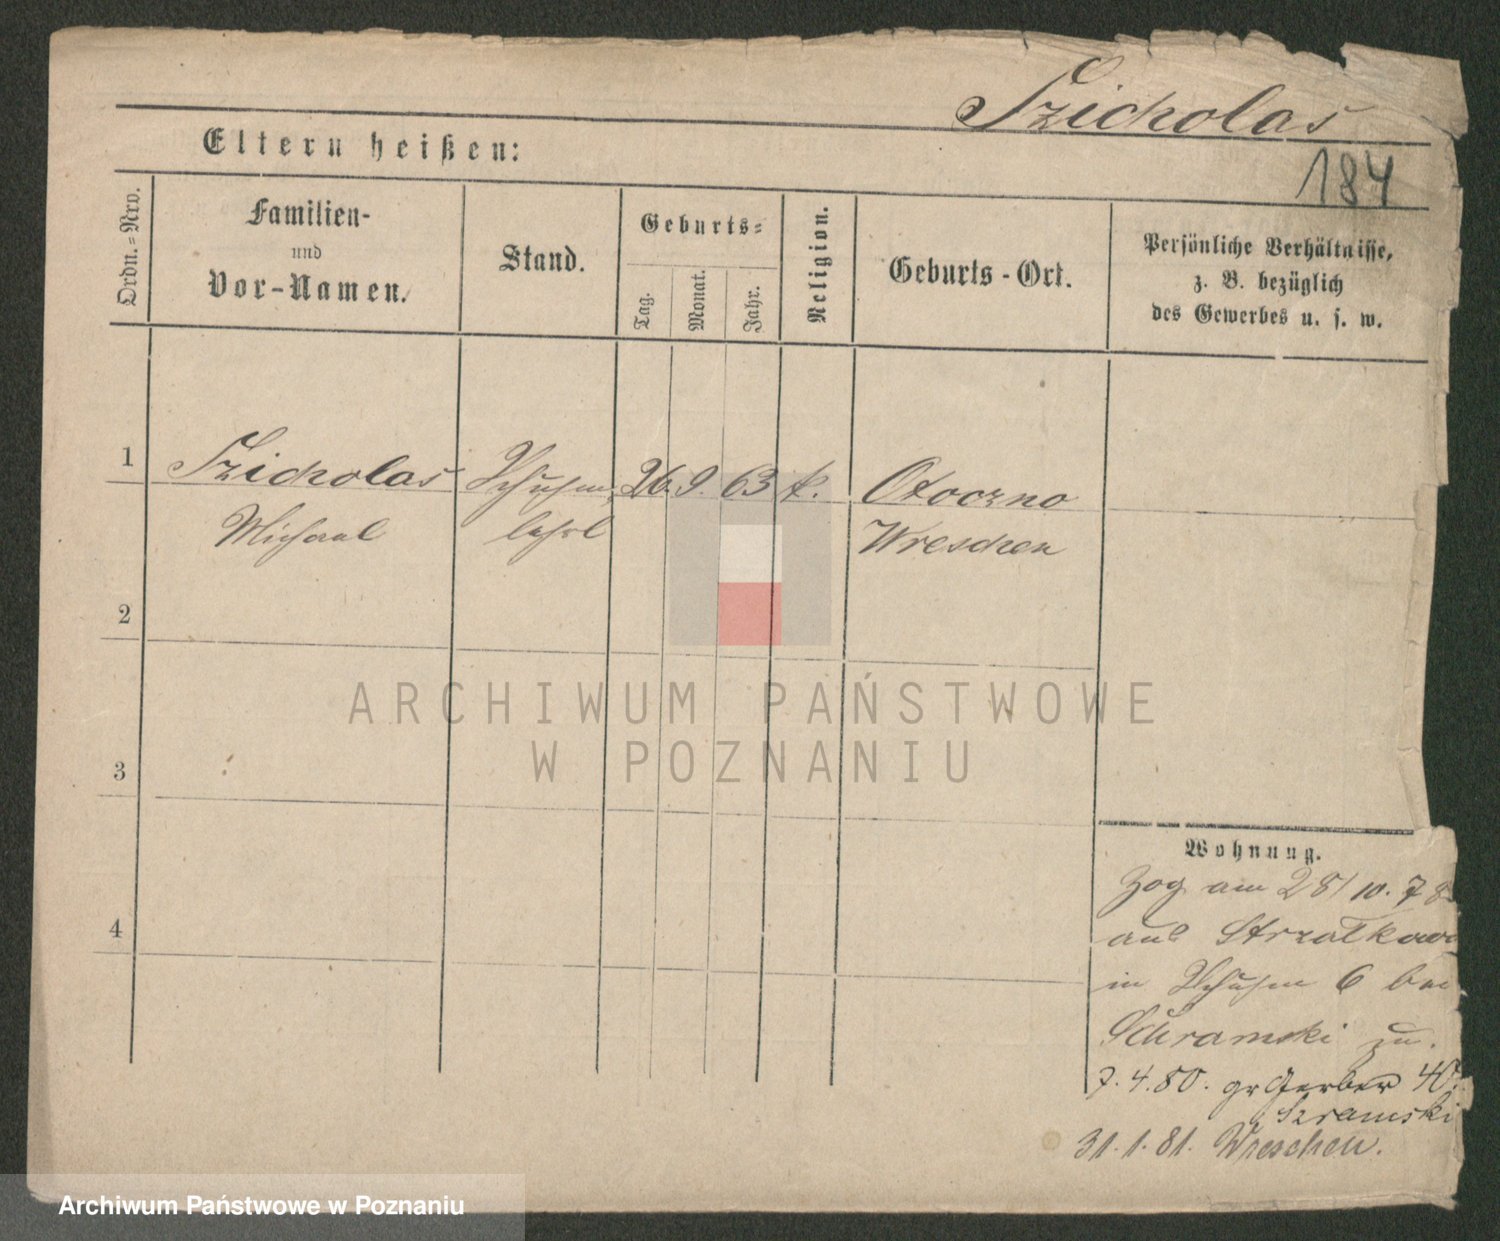 Szicholas
184
Eltern heißen:
Ordn.=Nro.
Familien-
und
Vor-Namen.
Stand.
Geburts=
Tag.
Monat.
Jahr.
Religion.
Geburts-Ort.
Persönliche Verhältnisse,
z. B. bezüglich
des Gewerbes u. s. w.
1
Szicholas
26. 9. 63 k.
Otoczno
Michael
lehrl
Wreschen
2
ARCHIWUM PAŃSTWOWE
W POZNANIU
3
4
Wohnung.
Zog am 28/10. 78
aus Strzalkowo
in 6 bei
Schramski zu.
7.4.80. gr Gerber 40.
Szramski
31.1.81. Wreschen.
Archiwum Państwowe w Poznaniu